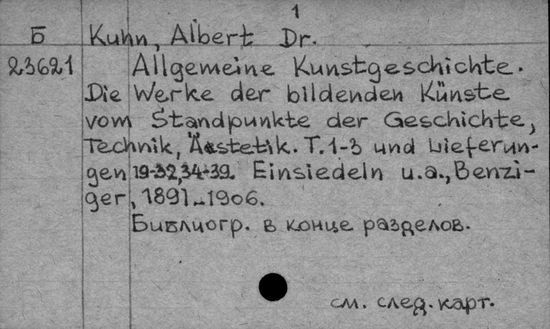 1
Б Kuhn, Albert Dr.
23621 Allgemeine Kunstgeschichte.
Die Werke der bildenden Künste
vom Standpunkte der Geschichte,
Technik, Äestetik. T.1-3 und Lieferun-
gen 19-32,34-39. Einsiedeln u.a., Benzi-
ger, 1891-1906.
Библиогр. в конце разделов.
см. след. карт.